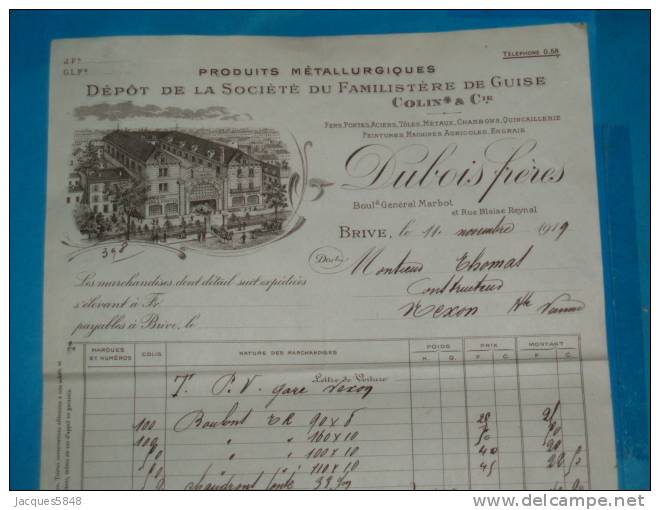 J. Fº
G.L.Fº
TÉLÉPHONE 0.58
PRODUITS MÉTALLURGIQUES
DÉPÔT DE LA SOCIÉTÉ DU FAMILISTÈRE DE GUISE
COLIN & CIE
FERS, FONTES, ACIERS, TÔLES, MÉTAUX, CHARBONS, QUINCAILLERIE
PEINTURES, MACHINES AGRICOLES, ENGRAIS
Dubois frères
Boulᵈ Général Marbot
et Rue Blaise Raynal
BRIVE, le 11 novembre 1919
398
Doit
Monsieur Thomas
Constructeur
Nexon Hte Vienne
Les marchandises dont détail suit expédiées
s'élevant à Fr
payables à Brive, le
MARQUES ET NUMÉROS COLIS NATURE DES MARCHANDISES POIDS PRIX MONTANT
K. G. F. C. F. C.
Lettre de Voiture
P. V. gare Nexon
100 Boulons 90 x 8
100 " " 160 x 10
" " 100 x 10 40
" " 110 x 10 45
Jacques5848
delcampe.net